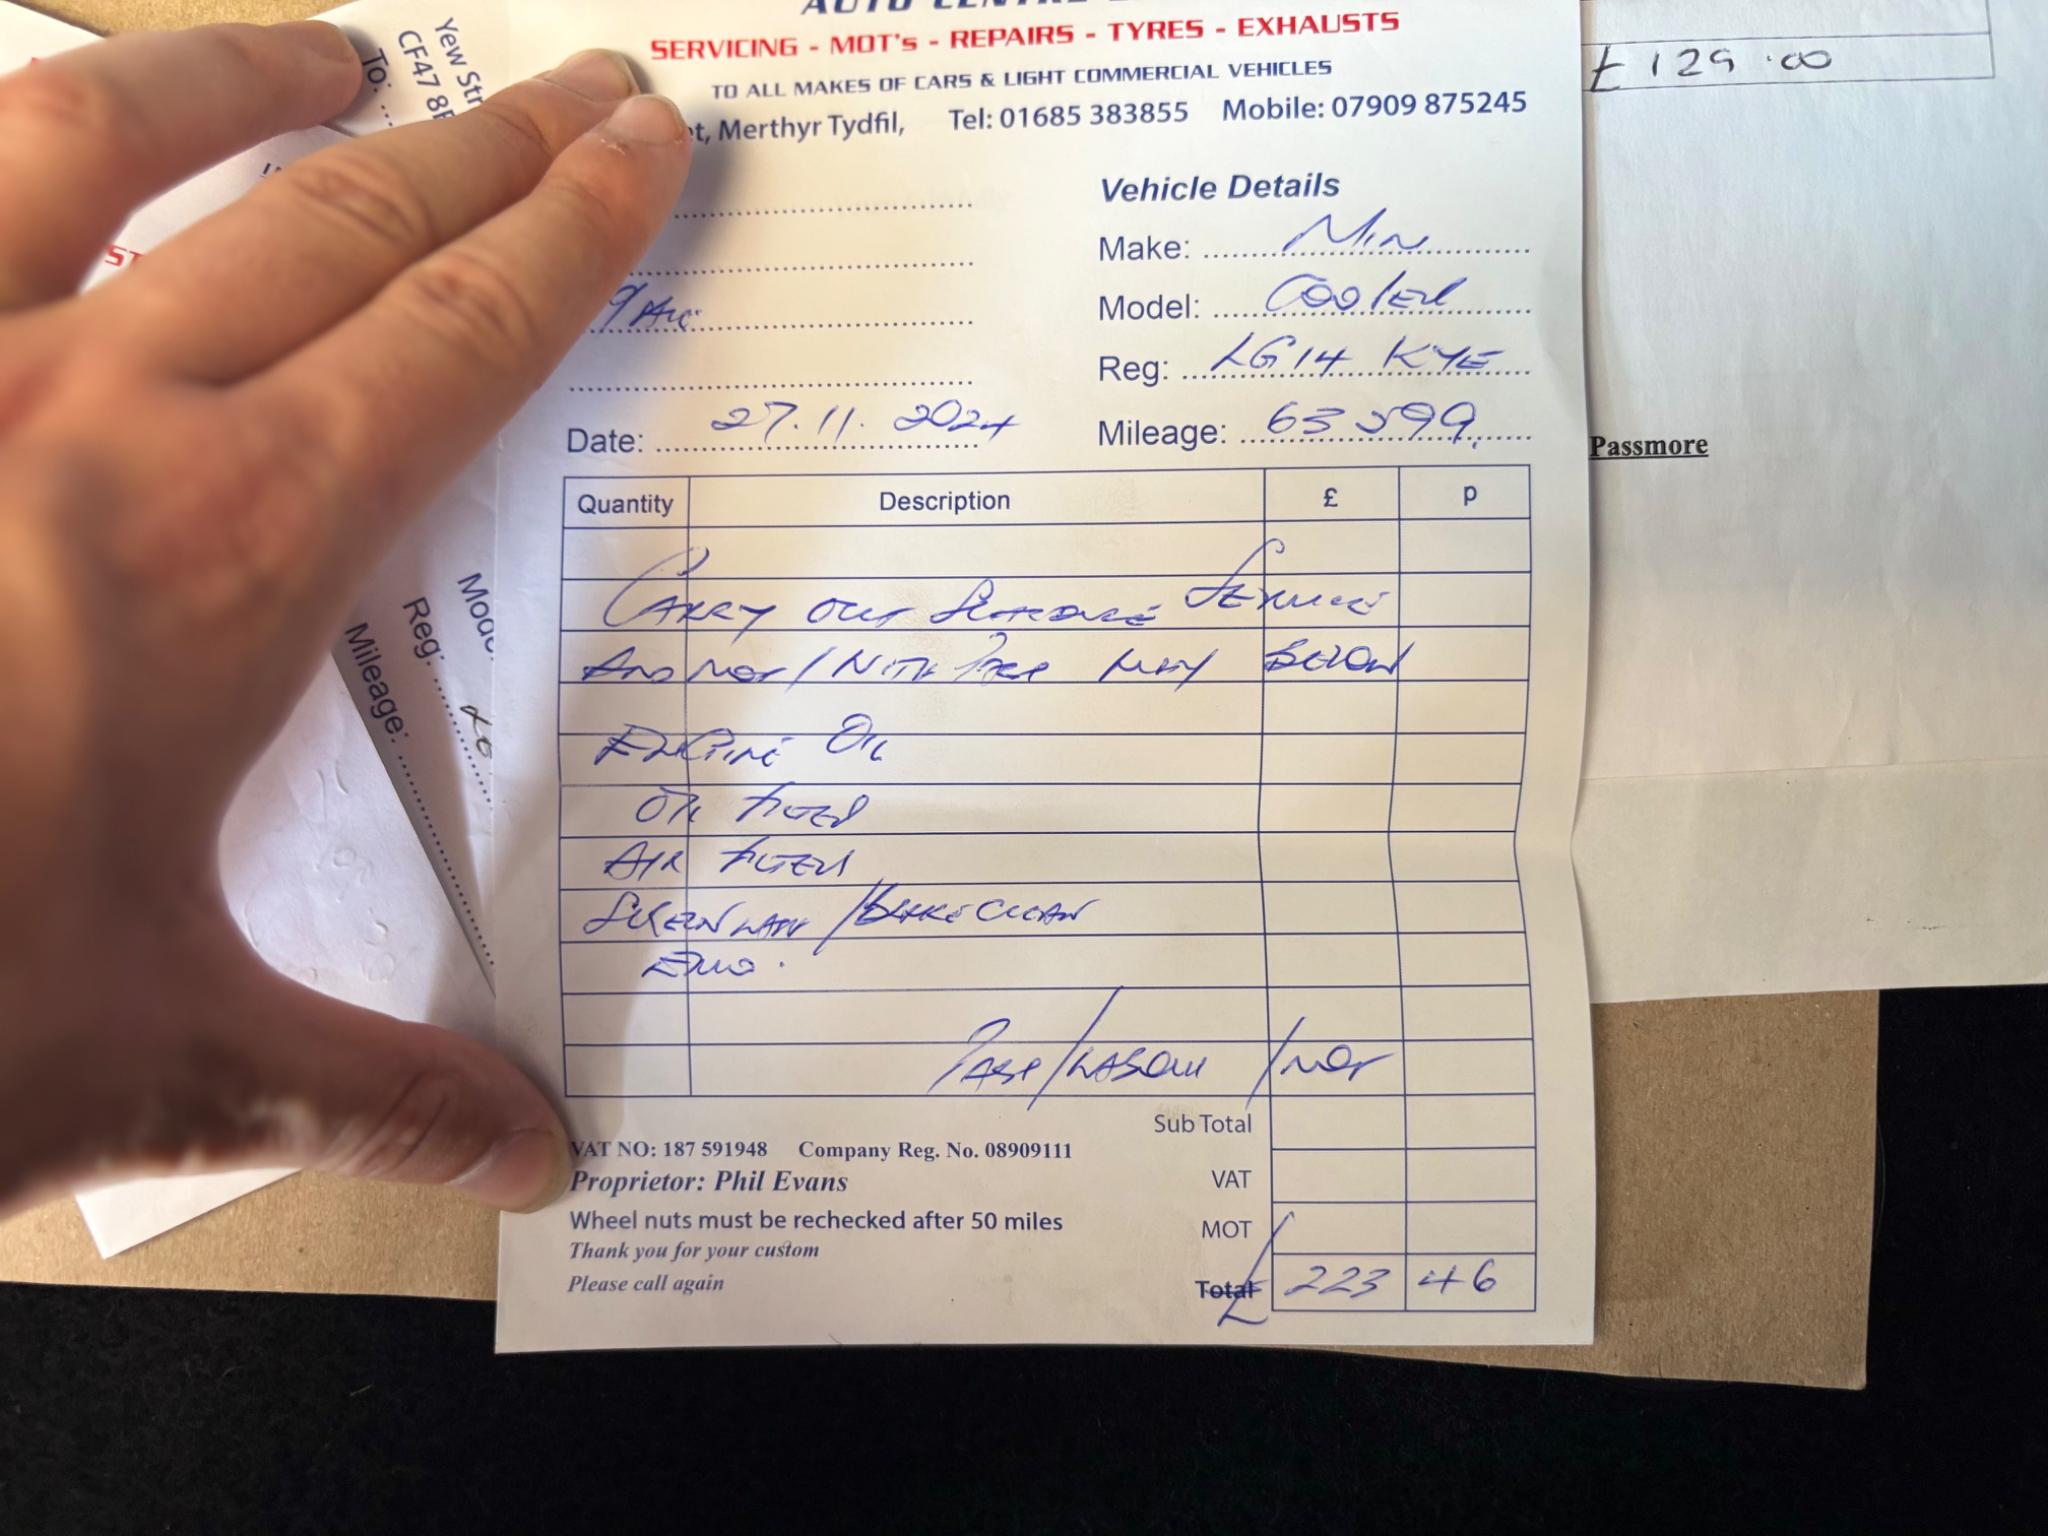 AUTO CENTRE
SERVICING - MOT's - REPAIRS - TYRES - EXHAUSTS
TO ALL MAKES OF CARS & LIGHT COMMERCIAL VEHICLES
et, Merthyr Tydfil, Tel: 01685 383855 Mobile: 07909 875245
Yew Str
CF47 8
To:
ST
Mode
Reg:
Mileage:
Vehicle Details
Make: Min
Model: Cooper
Reg: LG14 KYE
Date: 27.11.2024
Mileage: 63 599
Quantity Description £ p
Carry out Service
And MOT / With Below
Engine Oil
Oil Filter
Air Filter
Screenwash / Brake Clean
Parts / Labour / MOT
Sub Total
VAT NO: 187 591948 Company Reg. No. 08909111
Proprietor: Phil Evans
VAT
Wheel nuts must be rechecked after 50 miles
MOT
Thank you for your custom
Please call again
Total £ 223 46
£129.00
Passmore